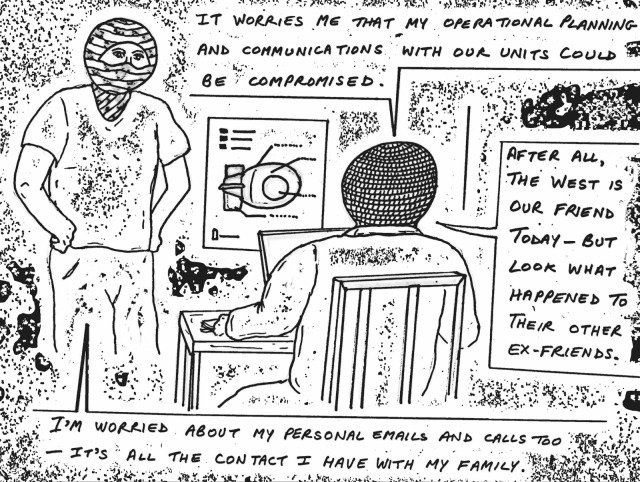 IT WORRIES ME THAT MY OPERATIONAL PLANNING
AND COMMUNICATIONS WITH OUR UNITS COULD
BE COMPROMISED.
AFTER ALL,
THE WEST IS
OUR FRIEND
TODAY – BUT
LOOK WHAT
HAPPENED TO
THEIR OTHER
EX-FRIENDS.
I'M WORRIED ABOUT MY PERSONAL EMAILS AND CALLS TOO
– IT'S ALL THE CONTACT I HAVE WITH MY FAMILY.